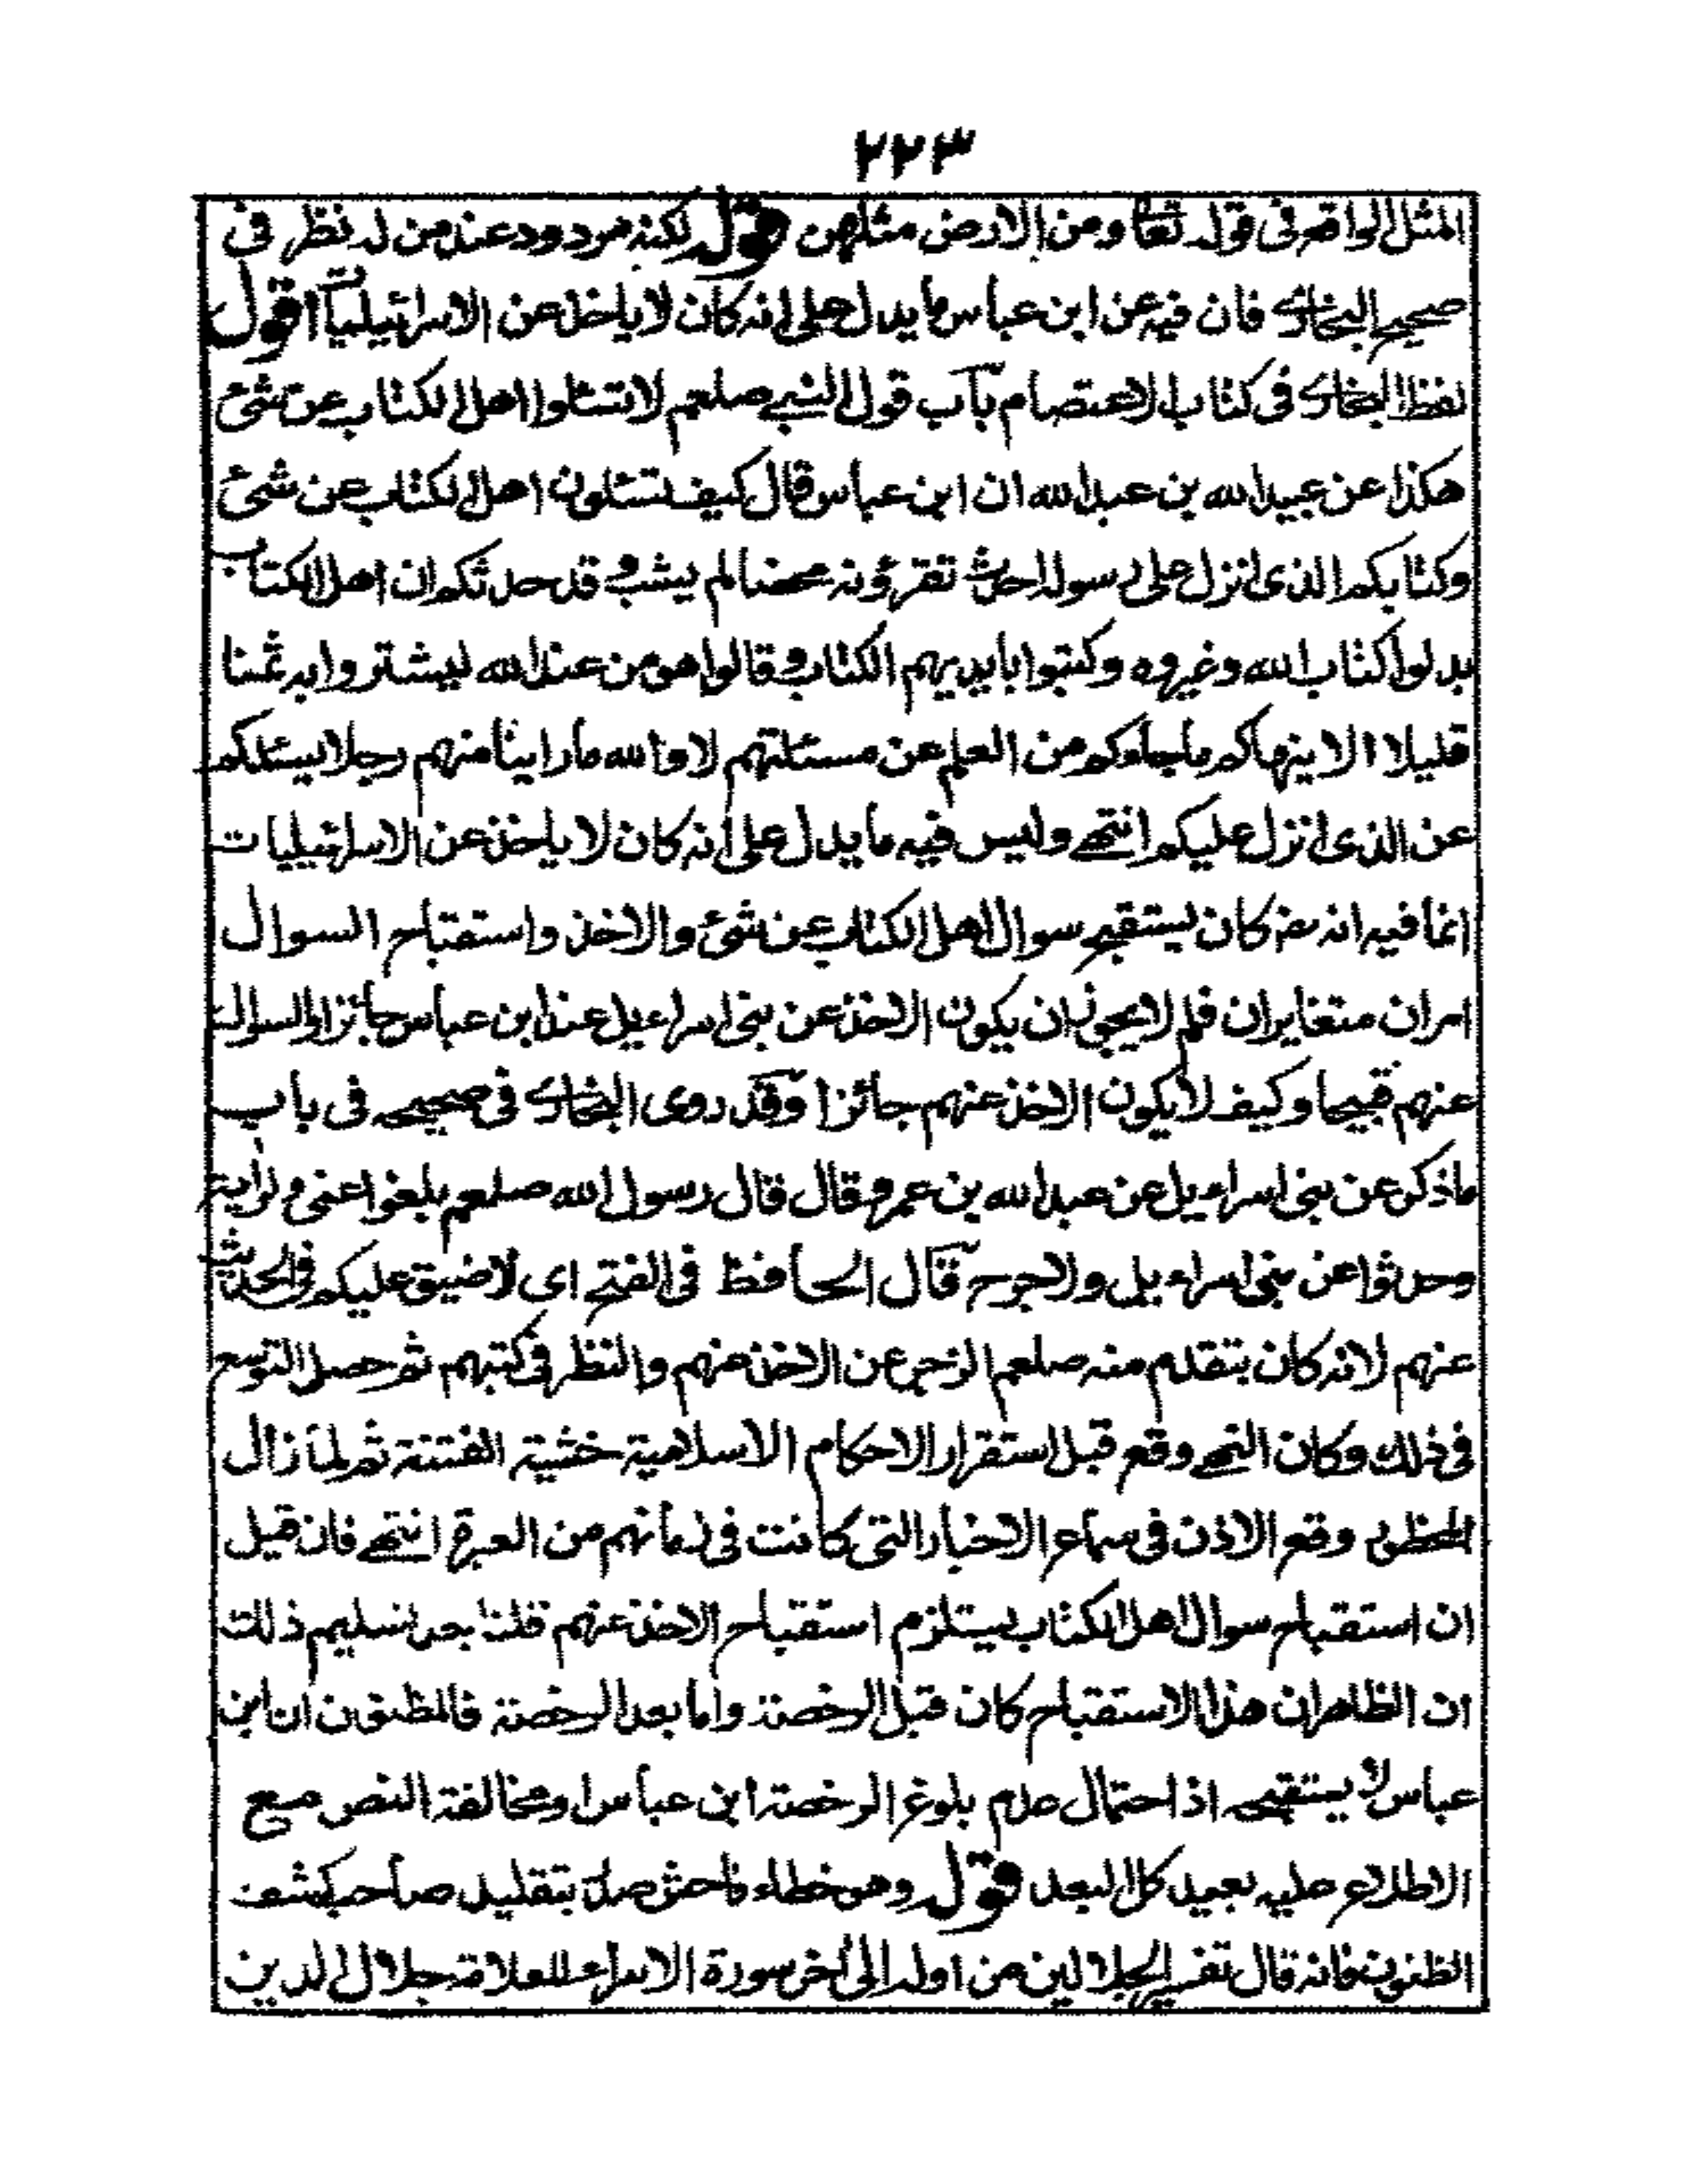 ٢٢٣
المثل الواقع فى قوله تعا ومن الارض مثلهن قوله لكنه مردود عند من له نظر فى
صحيح البخارى فان فيه عن ابن عباس ما يدل على انه كان لا ياخذ عن الاسرائيليات اقول
لفظ البخارى فى كتاب الاعتصام باب قول النبى صلعم لا تسئلوا اهل الكتاب عن شئ
هكذا عن عبيد الله بن عبد الله ان ابن عباس قال كيف تسئلون اهل الكتاب عن شئ
وكتابكم الذى انزل على رسوله احدث تقرؤنه محضا لم يشب وقد حدثكم ان اهل الكتاب
بدلوا كتاب الله وغيروه وكتبوا بايديهم الكتاب وقالوا هو من عند الله ليشتروا به ثمنا
قليلا الا ينهاكم ما جاءكم من العلم عن مسئلتهم لا والله ما راينا منهم رجلا يسئلكم
عن الذى انزل عليكم انتهى وليس فيه ما يدل على انه كان لا ياخذ عن الاسرائيليات
انما فيه انه رضه كان يستقبح سوال اهل الكتاب عن شئ والاخذ واستقباح السوال
امران متغايران فلم لا يجوز ان يكون الاخذ عن بنى اسراءيل عند ابن عباس جائزا والسوال
عنهم قبيحا وكيف لا يكون الاخذ عنهم جائزا وقد روى البخارى فى صحيحه فى باب
ما ذكر عن بنى اسراءيل عن عبد الله بن عمرو قال قال رسول الله صلعم بلغوا عنى ولو اية
وحدثوا عن بنى اسراءيل ولا حرج قال الحافظ فى الفتح اى لا ضيق عليكم فى الحديث
عنهم لانه كان يتقدم منه صلعم الزجر عن الاخذ عنهم والنظر فى كتبهم ثم حصل التوسع
فى ذلك وكان النهى وقع قبل استقرار الاحكام الاسلامية خشية الفتنة ثم لما زال
المحظور وقع الاذن فى سماع الاخبار التى كانت فى زمانهم من العبرة انتهى فان قيل
ان استقباح سوال اهل الكتاب يستلزم استقباح الاخذ عنهم قلنا بعد تسليم ذلك
ان الظاهر ان هذا الاستقباح كان قبل الرخصة واما بعد الرخصة فالمظنون ان ابن
عباس لا يستقبحه اذ احتمال عدم بلوغ الرخصة ابن عباس او مخالفة النص مع
الاطلاع عليه بعيد كل البعد قوله وهو خطاء فاحش صدر بتقليد صاحب كشف
الظنون فانه قال تفسير الجلالين من اوله الى اخر سورة الاسراء للعلامة جلال الدين